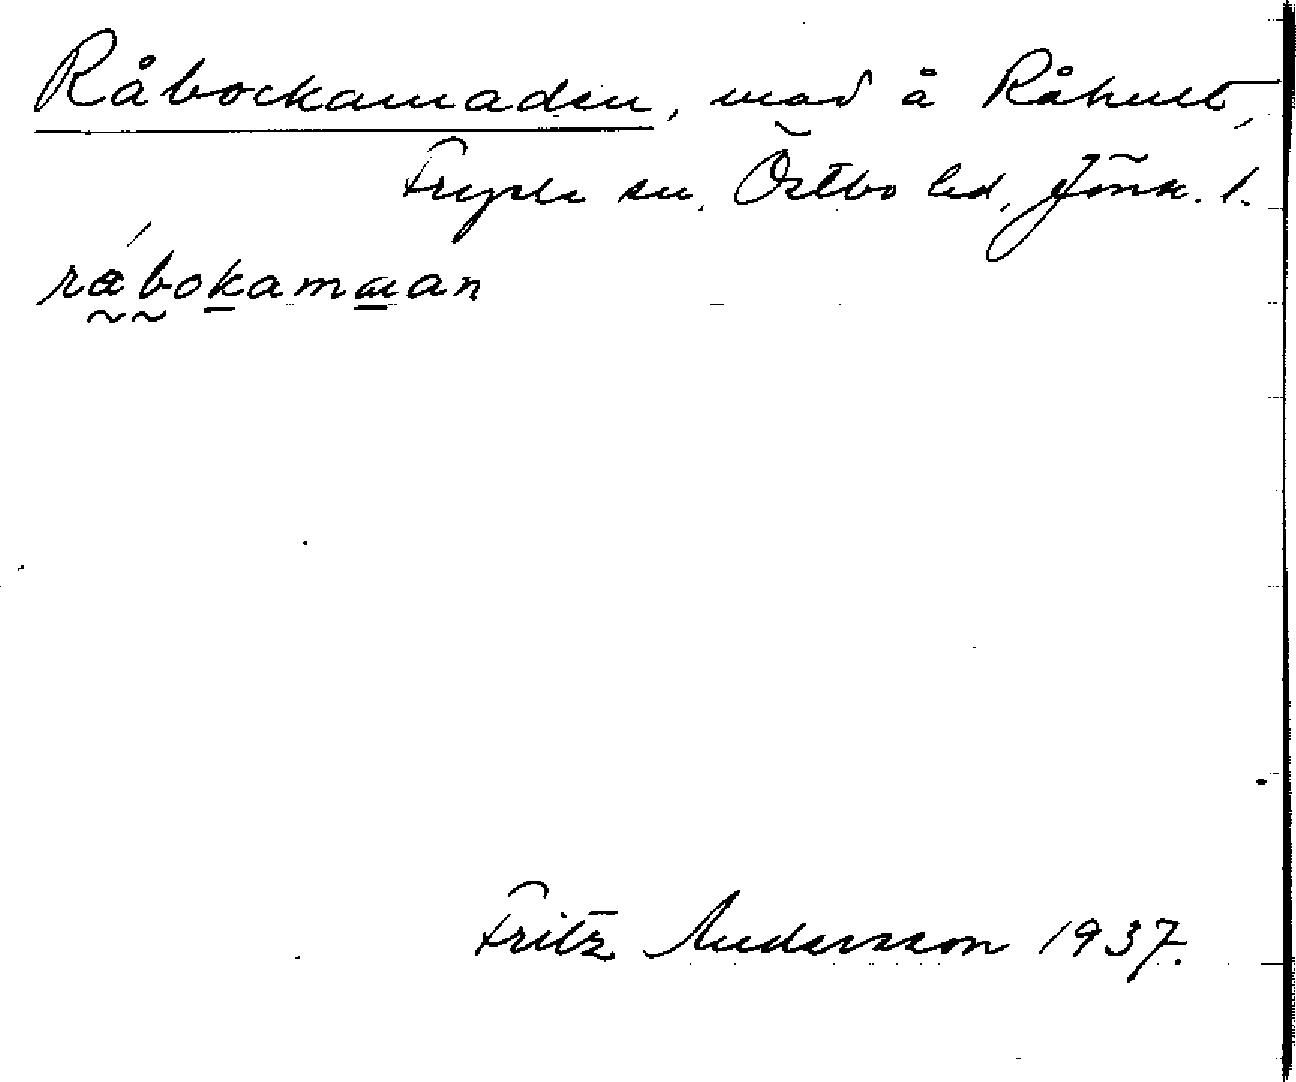 Råbockamaden, mad å Råhult,
Fryele sn, Östbo hd, Jönk. l.
råbokamaan
Fritz Andersson 1937.